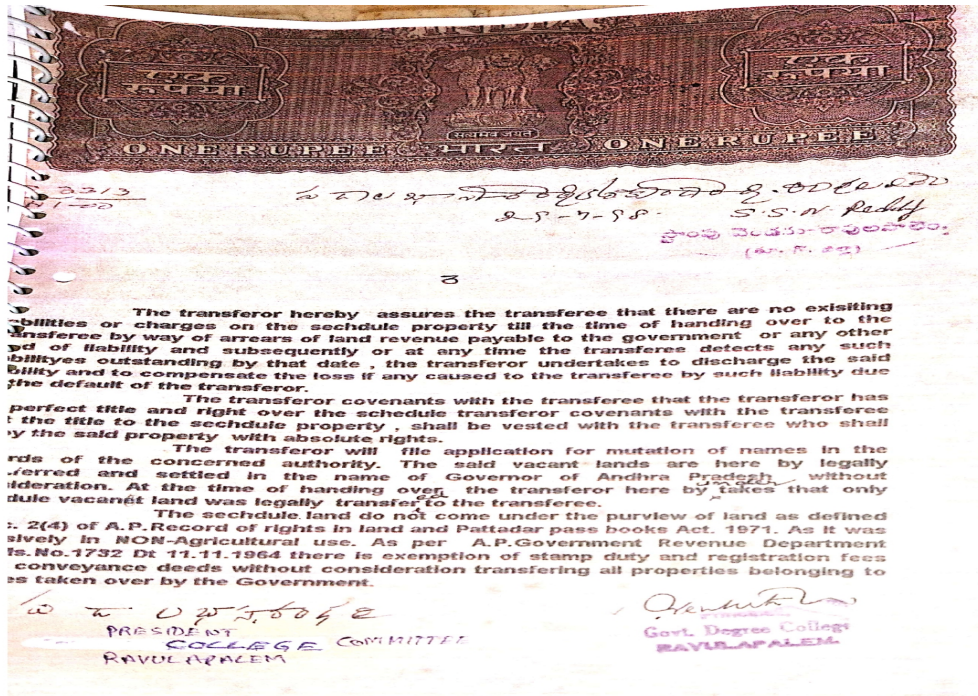 INDIA
एक रूपया
एक रूपया
सत्यमेव जयते
ONE RUPEE भारत ONE RUPEE
3313
S.S.N. Reddy
3
The transferor hereby assures the transferee that there are no exisiting
bilities or charges on the sechdule property till the time of handing over to the
ansferee by way of arrears of land revenue payable to the government or any other
d of liability and subsequently or at any time the transferee detects any such
bilityes outstanding by that date , the transferor undertakes to discharge the said
bility and to compensate the loss if any caused to the transferee by such liability due
the default of the transferor.
The transferor covenants with the transferee that the transferor has
perfect title and right over the schedule transferor covenants with the transferee
t the title to the sechdule property , shall be vested with the transferee who shall
y the said property with absolute rights.
The transferor will file application for mutation of names in the
rds of the concerned authority. The said vacant lands are here by legally
ferred and settled in the name of Governor of Andhra Pradesh without
ideration. At the time of handing over, the transferor here by takes that only
dule vacant land was legally transfer to the transferee.
The sechdule land do not come under the purview of land as defined
c. 2(4) of A.P.Record of rights in land and Pattadar pass books Act. 1971. As it was
sively in NON-Agricultural use. As per A.P.Government Revenue Department
Ms.No.1732 Dt 11.11.1964 there is exemption of stamp duty and registration fees
conveyance deeds without consideration transfering all properties belonging to
es taken over by the Government.
PRESIDENT
COLLEGE COMMITTEE
RAVULAPALEM
Govt. Degree College
RAVULAPALEM.